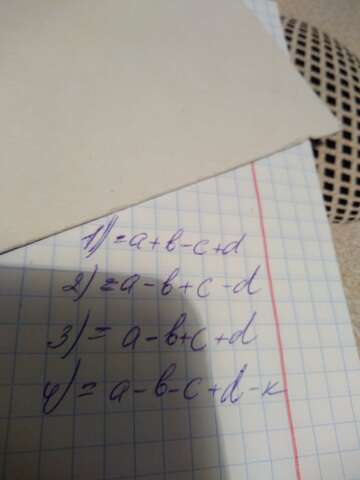 1) = a + b - c + d
2) = a - b + c - d
3) = a - b + c + d
4) = a - b - c + d - к